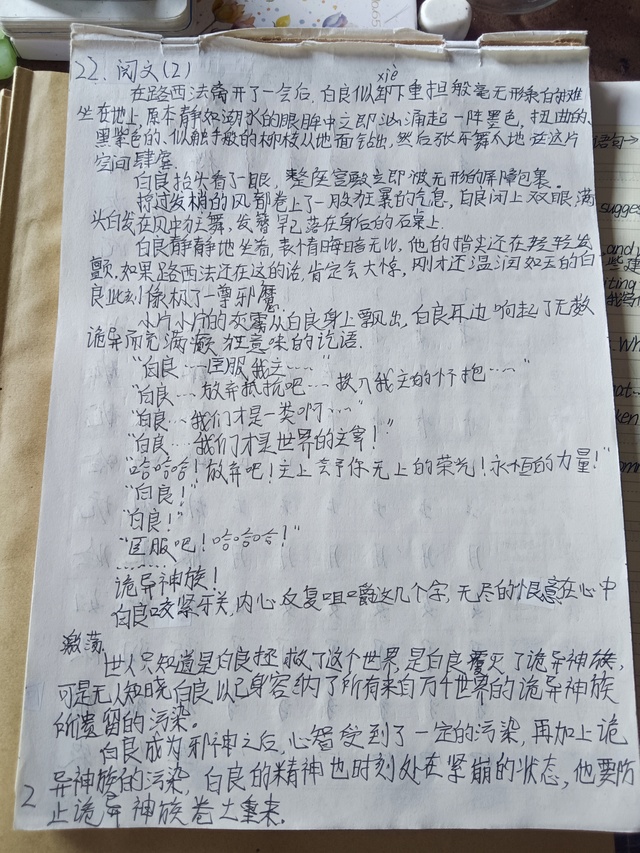 22. 阅文(2)
xiè
在路西法离开了一会后,白良似卸下重担般毫无形象的瘫
坐在地上,原本静如湖水的眼眸中立即汹涌起一阵墨色,扭曲的、
黑紫色的、似触手般的柳枝从地面钻出,然后张牙舞爪地在这片
空间肆虐。
白良抬头看了一眼,整座宫殿立即被无形的屏障包裹。
掠过发梢的风都卷上了一股狂暴的气息,白良闭上双眼,满
头白发在风中狂舞,发簪早已落在身后的石桌上。
白良静静地坐着,表情晦暗无比,他的指尖还在轻轻发
颤,如果路西法还在这的话,肯定会大惊,刚才还温润如玉的白
良此刻像极了一尊邪魔。
小片小片的灰雾从白良身上飘出,白良耳边响起了无数
诡异而充满癫狂意味的诡语。
“白良……臣服我主……”
“白良……放弃抵抗吧……投入我主的怀抱……”
“白良……我们才是一类啊……”
“白良……我们才是世界的主宰!”
“哈哈哈!放弃吧!主上会予你无上的荣光!永恒的力量!”
“白良!”
“白良!”
“臣服吧!哈哈哈!”
……
诡异神族!
白良咬紧牙关,内心反复咀嚼这几个字,无尽的恨意在心中
激荡。
世人只知道是白良拯救了这个世界,是白良覆灭了诡异神族,
可是无人知晓白良以己身容纳了所有来自万千世界的诡异神族
所遗留的污染。
白良成为邪神之后,心智受到了一定的污染,再加上诡
异神族的污染,白良的精神也时刻处在紧崩的状态,他要防
止诡异神族卷土重来。
2
语句→
sugges
and
些建
iting
我得
Wh
at…
ken